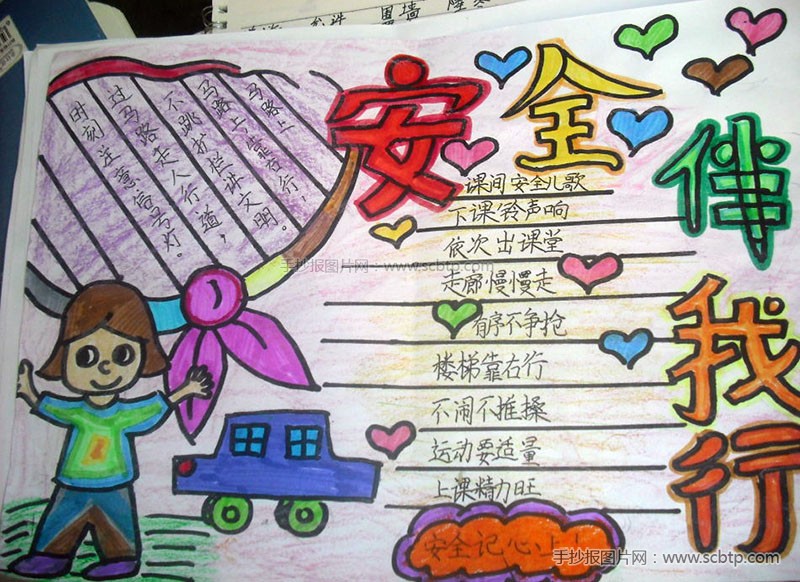 安全伴我行
马路上,
马路上,靠右行,
不跳护栏讲文明。
过马路走人行道,
时刻注意信号灯。
课间安全儿歌
下课铃声响
依次出课堂
走廊慢慢走
有序不争抢
楼梯靠右行
不闹不推搡
运动要适量
上课精力旺
安全记心上!
手抄报图片网:www.scbtp.com
手抄报图片网:www.scbtp.com